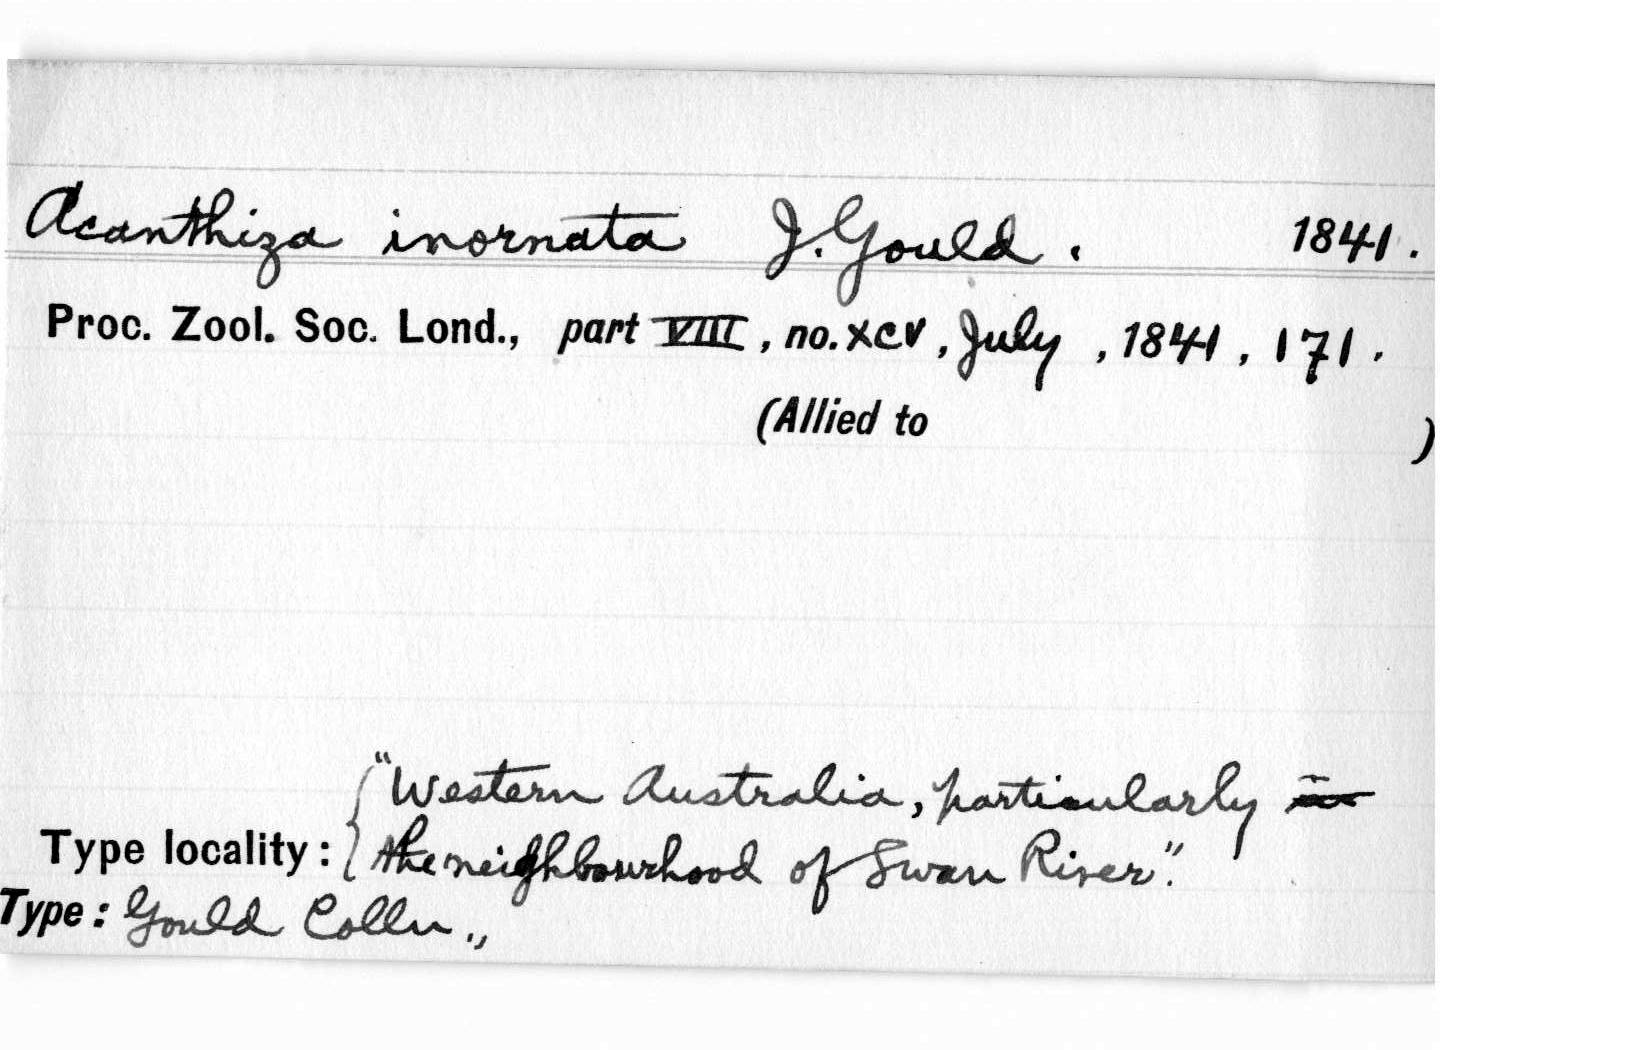 Acanthiza inornata J. Gould. 1841.
Proc. Zool. Soc. Lond., part VIII, no. xcv, July, 1841, 171.
(Allied to )
"Western Australia, particularly in
Type locality: { the neighbourhood of Swan River".
Type: Gould Colln.,